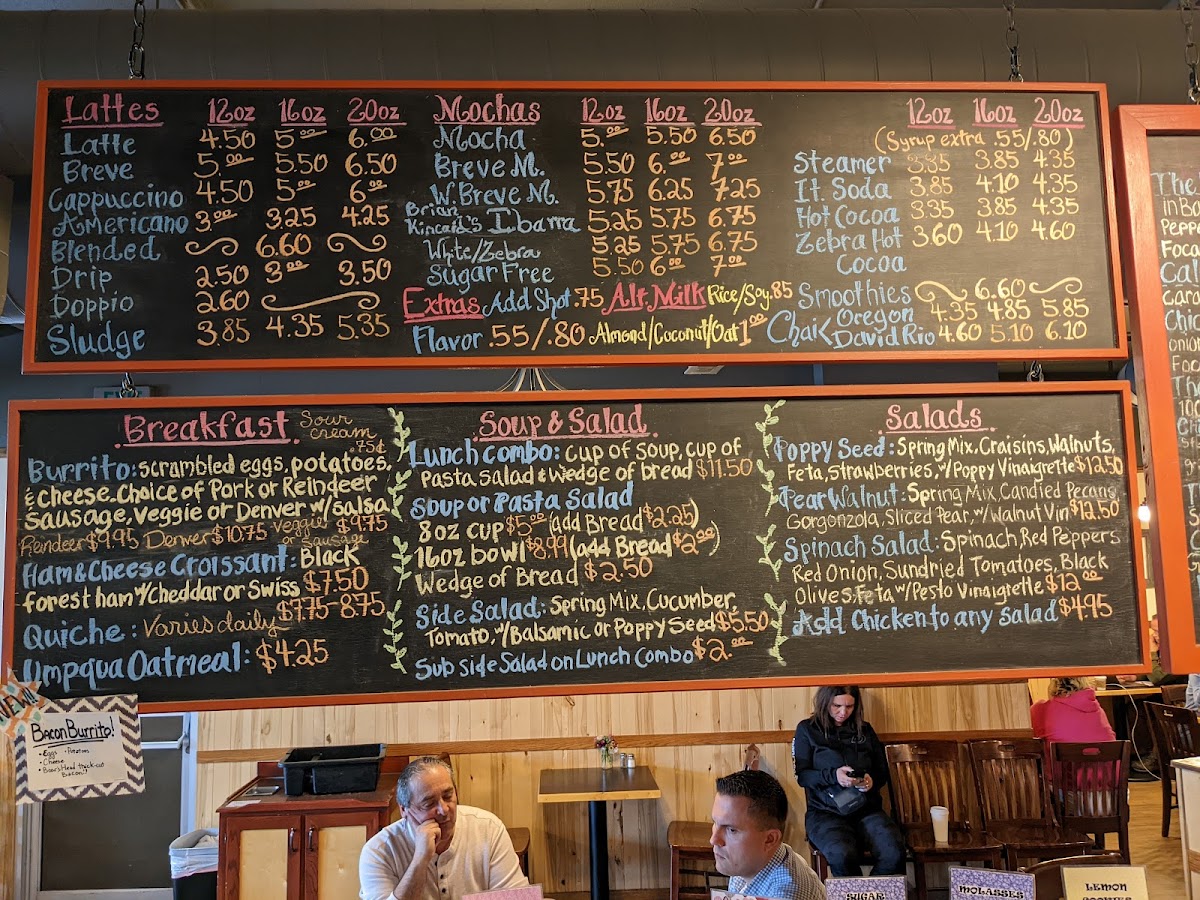 Lattes 12oz 16oz 20oz
Latte 4.50 5.00 6.00
Breve 5.00 5.50 6.50
Cappuccino 4.50 5.00 6.00
Americano 3.00 3.25 4.25
Blended 6.60
Drip 2.50 3.00 3.50
Doppio 2.60
Sludge 3.85 4.35 5.35
Mochas 12oz 16oz 20oz
Mocha 5.00 5.50 6.50
Breve M. 5.50 6.00 7.00
W. Breve M. 5.75 6.25 7.25
Brian Kincaid's Ibarra 5.25 5.75 6.75
White/Zebra 5.25 5.75 6.75
Sugar Free 5.50 6.00 7.00
Extras Add Shot .75 Alt. Milk Rice/Soy .85
Flavor .55/.80 Almond/Coconut/Oat 1.00
12oz 16oz 20oz
(Syrup extra .55/.80)
Steamer 3.85 3.85 4.35
It. Soda 3.85 4.10 4.35
Hot Cocoa 3.35 3.85 4.35
Zebra Hot 3.60 4.10 4.60
Cocoa
Smoothies 6.60
Chai < Oregon 4.35 4.85 5.85
David Rio 4.60 5.10 6.10
Breakfast Sour cream .75¢
Burrito: scrambled eggs, potatoes,
& cheese. Choice of Pork or Reindeer
Sausage, Veggie or Denver w/Salsa
Reindeer $9.95 Denver $10.75 Veggie or Sausage $9.75
Ham & Cheese Croissant: Black
forest ham w/Cheddar or Swiss $7.50
Quiche: Varies daily $7.75-8.75
Umpqua Oatmeal: $4.25
Soup & Salad
Lunch Combo: Cup of Soup, Cup of
Pasta Salad & Wedge of bread $11.50
Soup or Pasta Salad
8oz cup $5.00 (add Bread $2.25)
16oz bowl $8.99 (add Bread $2.00)
Wedge of Bread $2.50
Side Salad: Spring Mix, Cucumber,
Tomato, w/Balsamic or Poppy Seed $5.50
Sub side Salad on Lunch Combo $2.00
Salads
Poppy Seed: Spring Mix, Craisins, Walnuts,
Feta, Strawberries, w/Poppy Vinaigrette $12.50
Pear Walnut: Spring Mix, Candied Pecans
Gorgonzola, Sliced Pear, w/Walnut Vin $12.50
Spinach Salad: Spinach, Red Peppers
Red Onion, Sundried Tomatoes, Black
Olives, Feta w/Pesto Vinaigrette $12.00
Add Chicken to any Salad $4.95
NEW
Bacon Burrito!
• Eggs • Potatoes
• Cheese
• Boar's Head thick-cut
Bacon!!
SUGAR
MOLASSES
LEMON
COOKIES